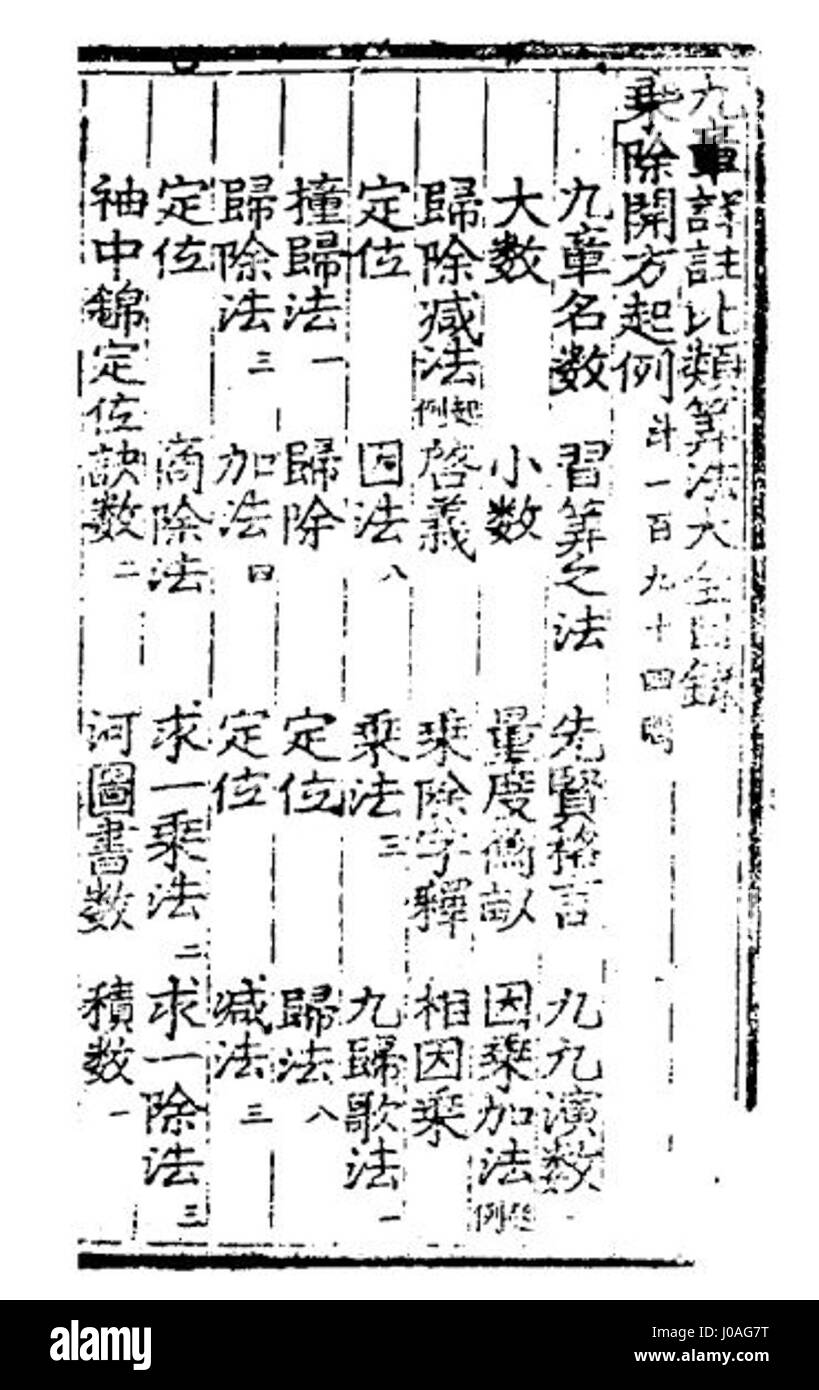 九章詳註比類算法大全目錄
乘除開方起例 計一百九十四問
九章名数 習算之法 先賢格言 九九演数
大数 小数 量度衡畝 因乘加法起例
歸除减法起例 啓義 乘除字釋 相因乘
定位 因法八 乘法三 九歸歌法一
撞歸法一 歸除 定位 歸法八
歸除法三 加法四 定位 减法三
定位 商除法 求一乘法二 求一除法三
袖中錦定位訣数二 河圖書数 積数一
alamy
Image ID: J0AG7T
www.alamy.com